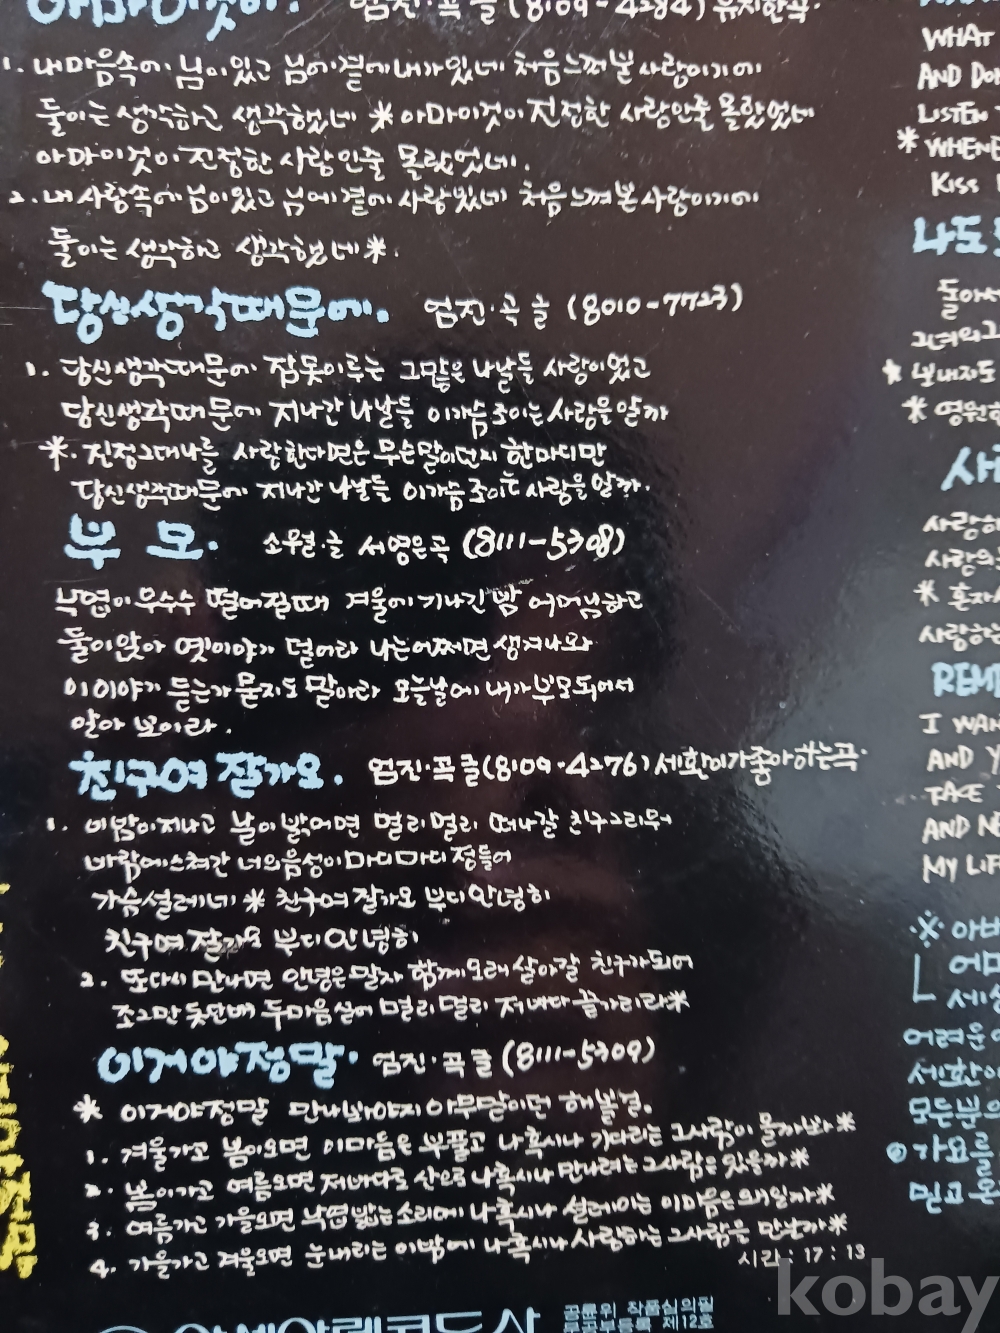 아마이것이. 엄진·곡 글 (8109-4284) 유지한곡.
1. 내마음속에 님이있고 님에곁에내가있네 처음느껴본 사랑이기에
둘이는 생각하고 생각했네 * 아마이것이 진정한 사랑인줄 몰랐었네
아마이것이 진정한 사랑인줄 몰랐었네.
2. 내 사랑속에 님이있고 님에곁에 사랑있네 처음느껴본사랑이기에
둘이는 생각하고 생각했네 *.
당신생각때문에. 엄진·곡 글 (8010-7723)
1. 당신생각때문에 잠못이루는 그많은 나날들 사랑이었고
당신생각때문에 지나간 나날들 이가슴조이는 사랑을 알까
*. 진정그대나를 사랑한다면은 무슨말이던지 한마디만
당신생각때문에 지나간 나날들 이가슴조이는 사랑을 알까.
부 모. 소월·글 서영은곡 (8111-5308)
낙엽이 우수수 떨어질때 겨울에 기나긴 밤 어머님하고
둘이앉아 옛이야기 덜어라 나는어쩌면 생겨나와
이 이야기 듣는가 묻지도 말아라 오늘날에 내가부모되어서
알아 보이라.
친구여 잘가오. 엄진·곡 글 (8109-4276) 세환이가좋아하는곡.
1. 이밤이지나고 날이 밝어면 멀리멀리 떠나갈 친구그리워
바람에스쳐간 너의음성이 마디마디 정들어
가슴설레네 * 친구여 잘가오 부디안녕히
친구여 잘가오 부디안녕히
2. 또다시 만나면 안녕은말자 함께오래 살아갈 친구가되어
조그만 돛단배 두마음실어 멀리멀리 저바다 끝가리라*
이거야정말. 엄진·곡 글 (8111-5309)
* 이거야정말 만나봐야지 아무말이던 해볼걸.
1. 겨울가고 봄이오면 이마음은 부풀고 나혹시나 기다리는 그사람이 올까봐*
2. 봄이가고 여름오면 저바다로 산으로 나혹시나 만나려는 그사람은 있을까*
3. 여름가고 가을오면 낙엽밟는소리에 나혹시나 설레이는 이마음은왜일까*
4. 가을가고 겨울오면 눈내리는 이밤에 나혹시나 사랑하는 그사람을 만날까*
시간: 17 : 13
아세아레코드사 공륜위 작품심의필
문공부등록 제12호
WHAT
AND
LISTEN
*
KISS
나도
돌아서
그녀와그
* 보내지도
*
사랑하
사랑의
*
사랑하는
I WAN
AND Y
TAKE
AND N
MY LIF
※ 아버
어머
세상
어려운
세환이
모든분의
가요를
믿고
kobay